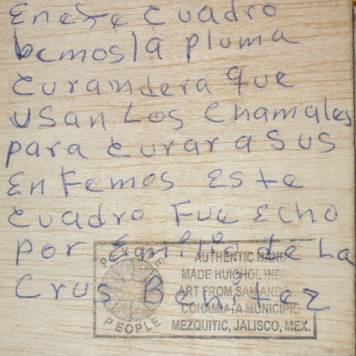 En este cuadro
bemos la pluma
curandera que
usan Los chamales
para curar a sus
enfemos Este
cuadro Fue Echo
por Emilio de La
Crus Benitez
PEYOTE
PEOPLE
AUTHENTIC HAND
MADE HUICHOL INDIAN
ART FROM SAN ANDRES
COHAMIATA MUNICIPIO
MEZQUITIC, JALISCO, MEX.